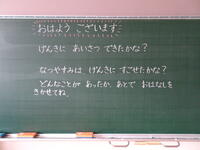 おはよう ございます
げんきに あいさつ できたかな？
なつやすみは げんきに すごせたかな？
どんなことが あったか、あとで おはなしを
きかせてね。